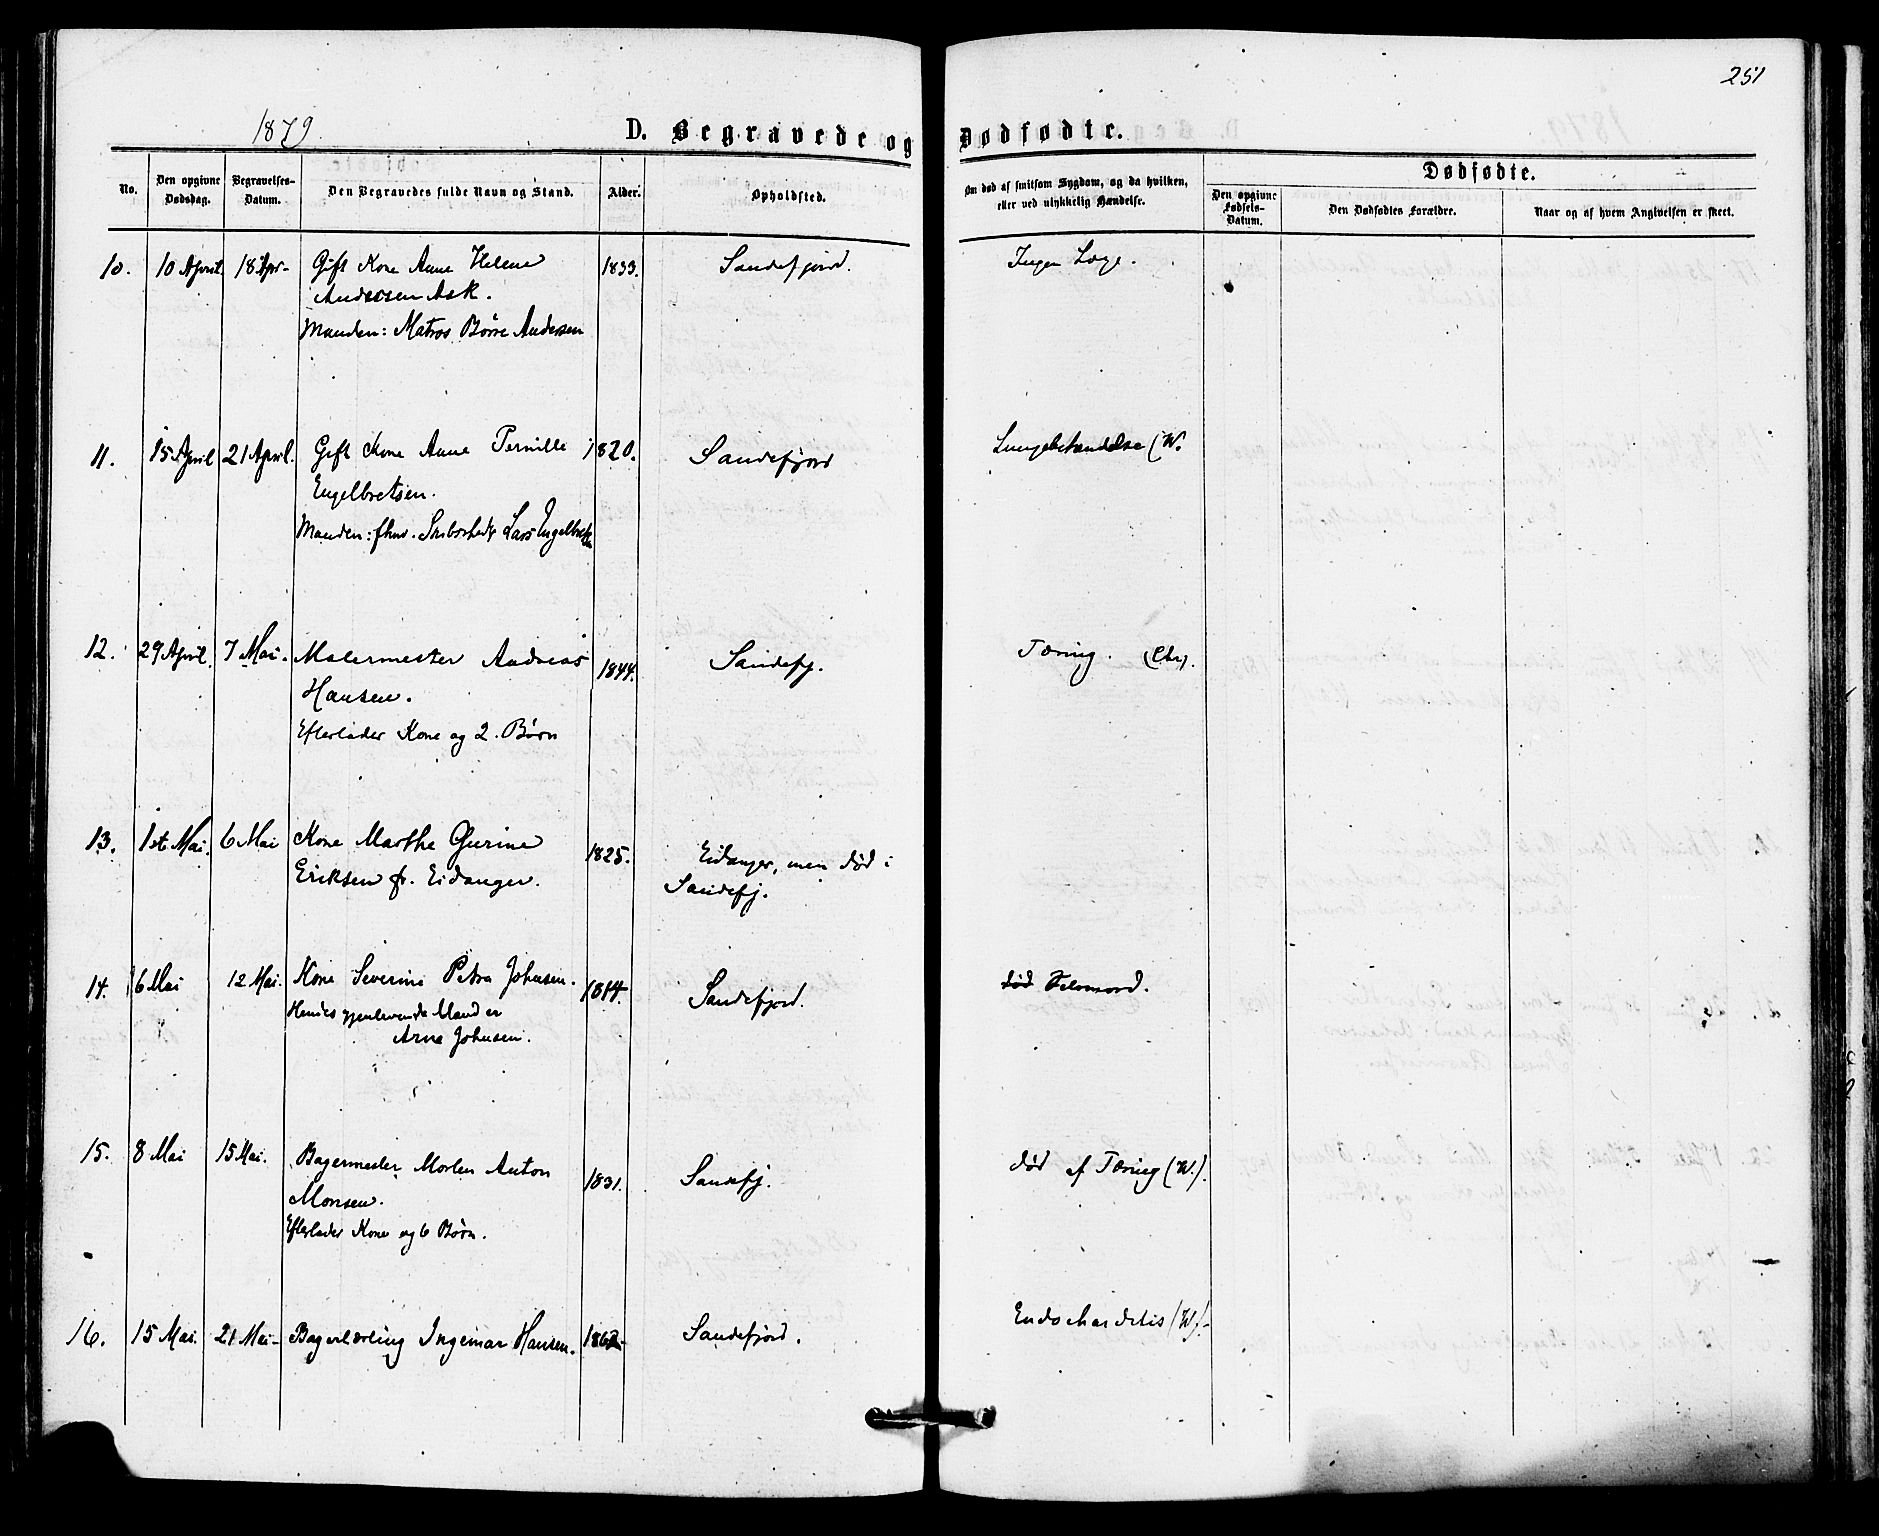 251
1879.
D. Begravede og Dødfødte.
No.
Den opgivne Dødsdag.
Begravelses-Datum.
Den Begravedes fulde Navn og Stand.
Alder.
Opholdsted.
Om død af smitsom Sygdom, og da hvilken, eller ved ulykkelig Hændelse.
Dødfødte.
Den opgivne Fødsels-Datum.
Den Dødfødtes Forældre.
Naar og af hvem Angivelsen er skeet.
10. 10 April 18 Apr- Gift Kone Anne Helene 1833. Sandefjord. Ingen Læge.
Andersen Ask.
Manden: Matros Børre Andersen
11. 15 April 21 April. Gift Kone Anne Pernille 1820. Sandefjord Lungebetændelse (W.
Engelbretsen.
Manden: fhv. Lars Engelbretsen
12. 29 April. 7 Mai. Malermester Andreas 1844. Sandefj. Tæring. (Chr).
Hansen.
Efterlader Kone og 2. Børn
13. 1ste Mai. 6 Mai Kone Marthe Gurine 1825. Eidanger, men død i
Eriksen fr. Eidanger. Sandefj.
14. 6 Mai 12 Mai. Kone Severine Petra Johnsen. 1814. Sandefjord. død Selvmord.
Hendes gjenlevende Mand er
Arne Johnsen.
15. 8 Mai 15 Mai. Bagermester Morten Anton 1831. Sandefj. død af Tæring (W.).
Monsen.
Efterlader Kone og 6 Børn.
16. 15 Mai. 21 Mai- Bagerlærling Ingemar Hansen. Sandefjord. Endochardetis (W).-